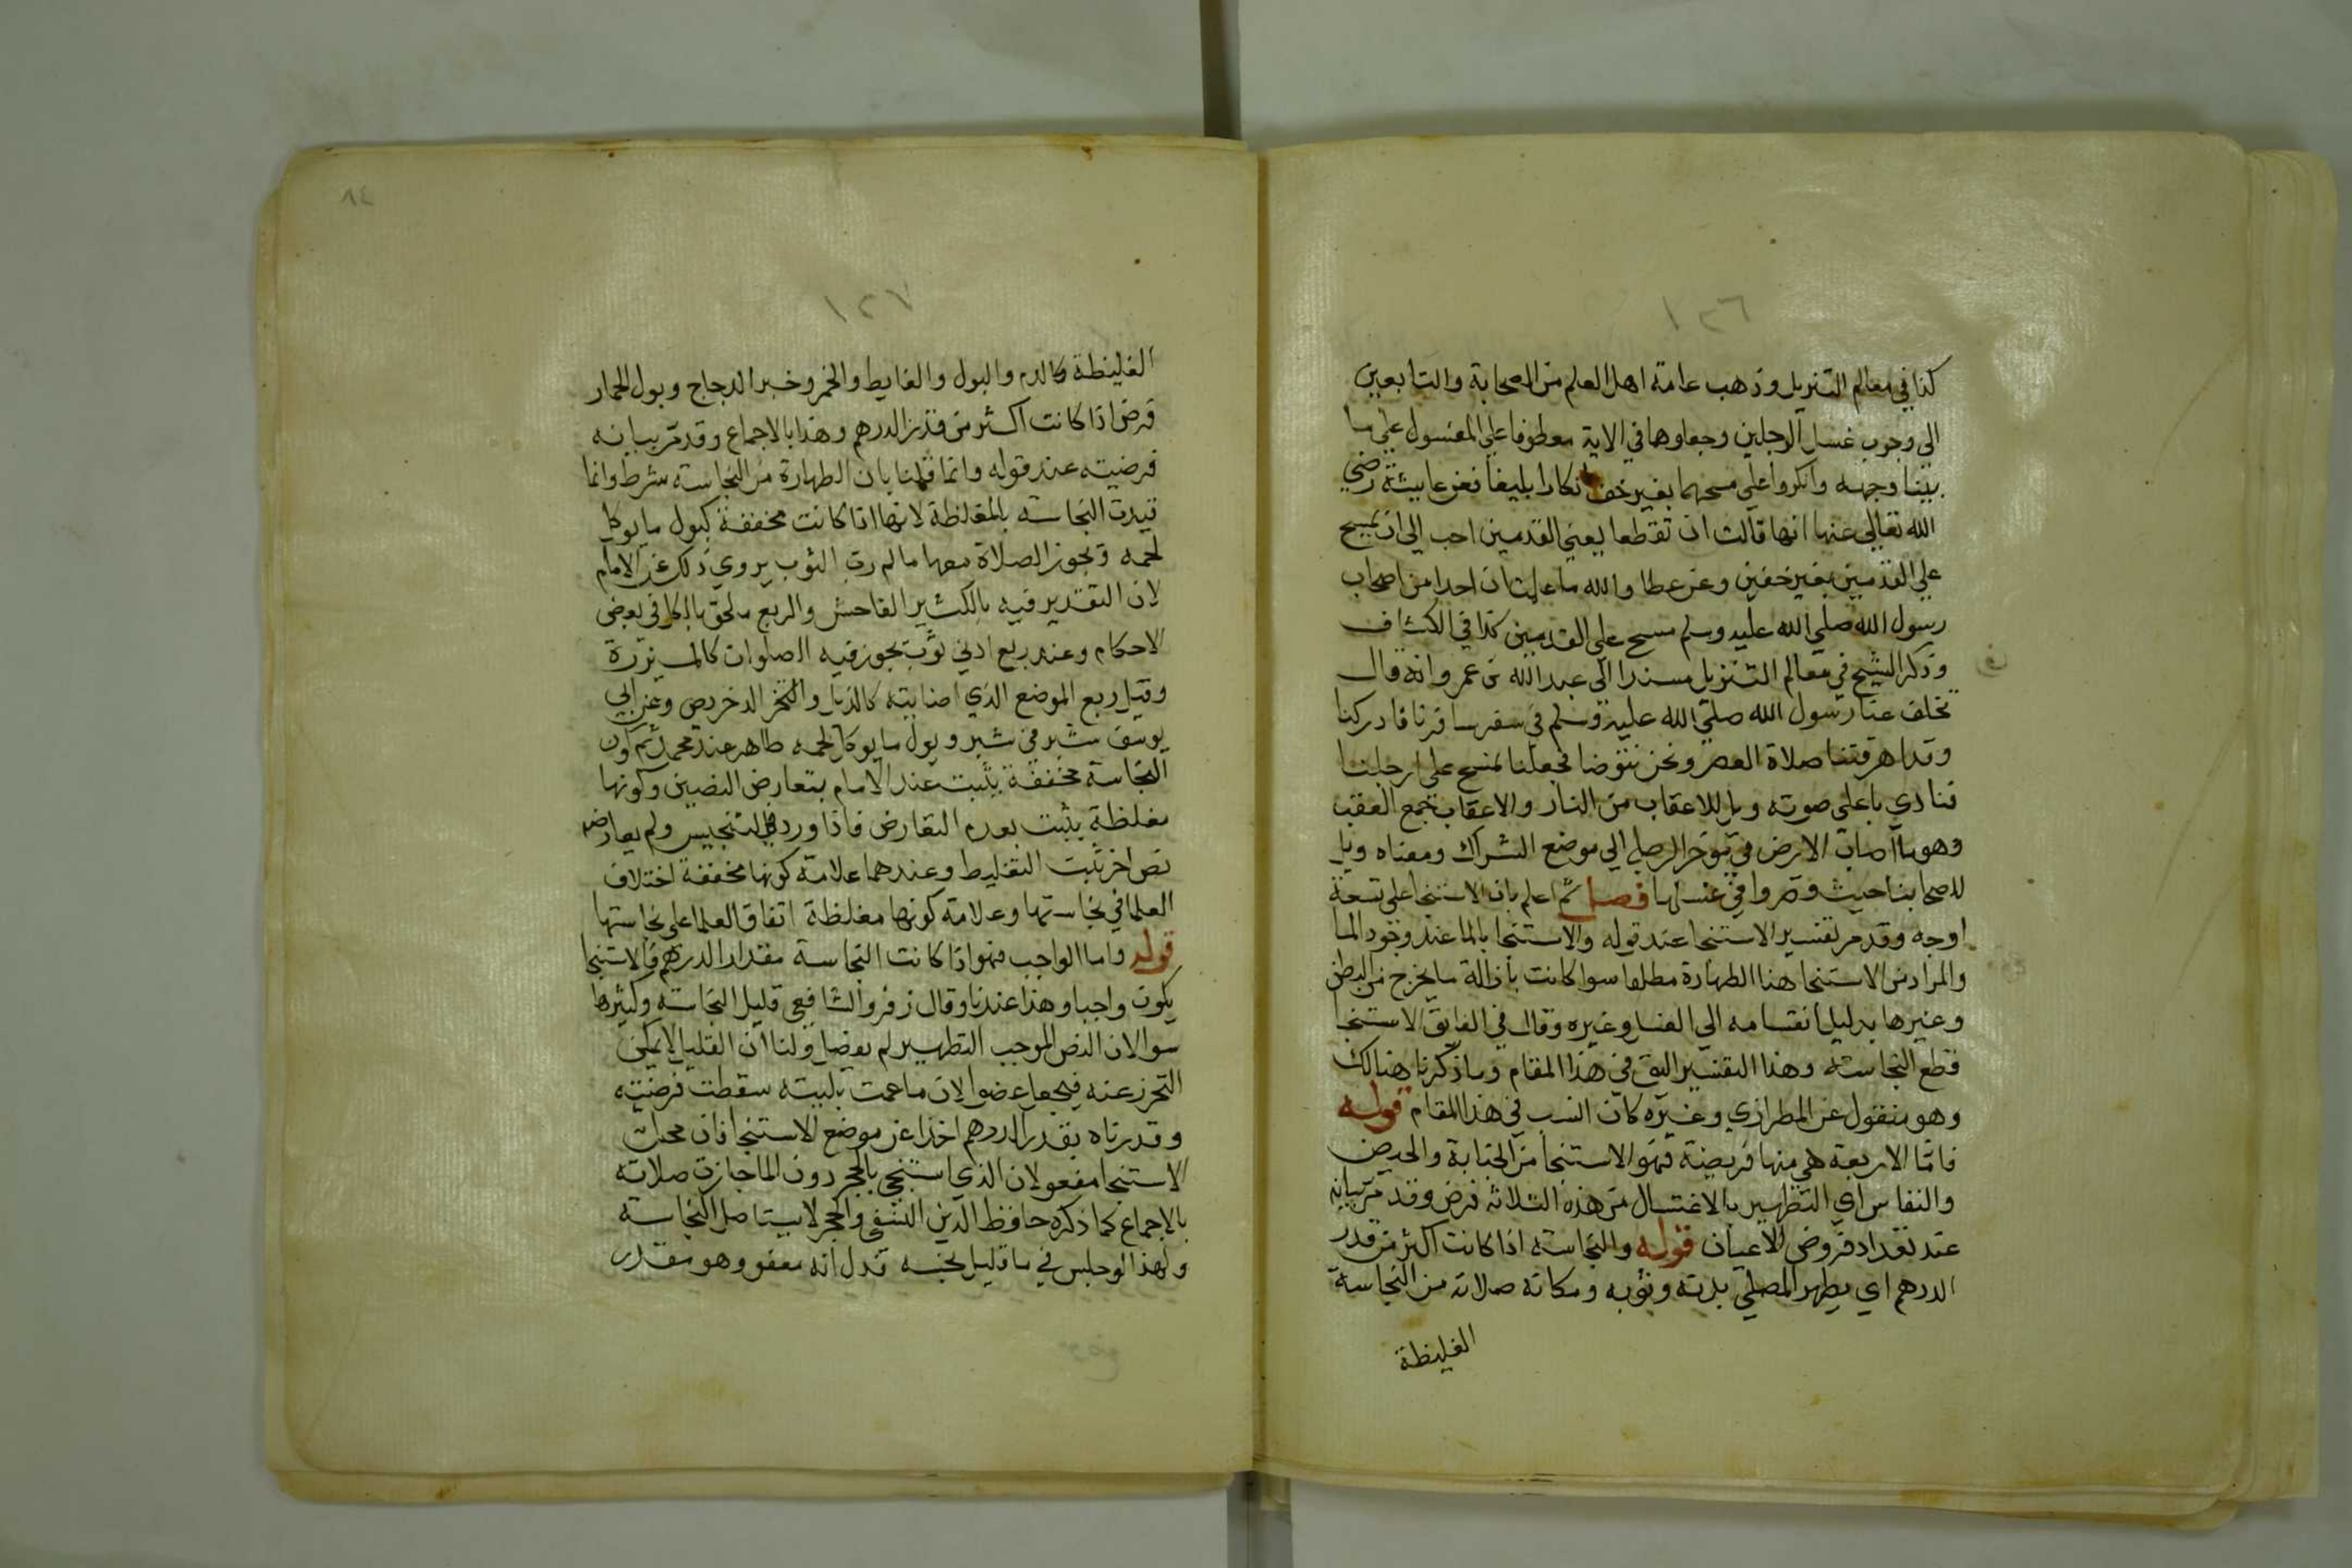 ١٢٦
كذا في معالم التنزيل وذهب عامة اهل العلم من الصحابة والتابعين
الى وجوب غسل الرجلين وجعلوها في الاية معطوفا على المغسول على ما
بينا وجهه وانكروا على مسحهما بغير خف انكارا بليغا فعن عايشة رضي
الله تعالى عنها انها قالت ان تقطعا يعني القدمين احب الي ان يمسح
على القدمين بغير خفين وعن عطا والله ما علمت ان احدا من اصحاب
رسول الله صلى الله عليه وسلم مسح على القدمين كذا في الكشاف
وذكر الشيخ في معالم التنزيل مسندا الى عبد الله بن عمرو انه قال
تخلف عنا رسول الله صلى الله عليه وسلم في سفر سافرنا فادركنا
وقد ارهقتنا صلاة العصر ونحن نتوضا فجعلنا نمسح على ارجلنا
فنادى باعلى صوته ويل للاعقاب من النار والاعقاب جمع العقب
وهو ما اصاب الارض من موخر الرجل الى موضع الشراك ومعناه ويل
لاصحابنا حيث قصروا في غسلها فصل ثم اعلم بان الاستنجا على تسعة
اوجه وقد مر تفسير الاستنجا عند قوله والاستنجا بالما عند وجود الما
والمراد من الاستنجا هنا الطهارة مطلقا سوا كانت بازالة ما يخرج من البطن
وغيرها بدليل انقسامه الى الغسل وغيره وقال في الفايق الاستنجا
قطع النجاسة وهذا التفسير اليق في هذا المقام وما ذكرنا هنالك
وهو منقول عن المطرازي وغيره كان انسب في هذا المقام قوله
فاما الاربعة هي منها فريضة فهو الاستنجا من الجنابة والحيض
والنفاس اي التطهير بالاغتسال من هذه الثلاثة فرض وقد مر بيانه
عند تعداد فروض الاعيان قوله والنجاسة اذا كانت اكثر من قدر
الدرهم اي يطهر المصلي بدنه وثوبه ومكانه صلاته من النجاسة
الغليظة
٨٤
١٢٧
الغليظة كالدم والبول والغايط والخمر وخبر الدجاج وبول الحمار
فرض اذا كانت اكثر من قدر الدرهم وهذا بالاجماع وقد مر بيانه
فرضيته عند قوله وانما قلنا بان الطهارة من النجاسة شرط وانما
قيدت النجاسة بالمغلظة لانها اذا كانت مخففة كبول ما يوكل
لحمه وتجوز الصلاة معها ما لم ربع الثوب يروي ذلك عن الامام
لان التقدير فيه بالكثير الفاحش والربع ملحق بالكل في بعض
الاحكام وعنه ربع ادني ثوب تجوز فيه الصلوات كالميزرة
وقيل ربع الموضع الذي اصابته كالذيل والدخريص وعن ابي
يوسف شبر في شبر وبول ما يوكل لحمه طاهر عند محمد ثم كون
النجاسة مخففة يثبت عند الامام بتعارض النصين وكونها
مغلظة يثبت بعدم التعارض فاذا ورد في التنجيس ولم يعارضه
نص اخر ثبت التغليظ وعندهما علامة كونها مخففة اختلاف
العلما في نجاستها وعلامة كونها مغلظة اتفاق العلما على نجاستها
قوله واما الواجب فهو اذا كانت النجاسة مقدار الدرهم فالاستنجا
يكون واجبا وهذا عندنا وقال زفر والشافعي قليل النجاسة وكثيرها
سوا لان النص الموجب التطهير لم يفصل ولنا ان القليل لا يمكن
التحرز عنه فيجعل عفوا لان ما عمت بليته سقطت فرضيته
وقدرناه بقدر الدرهم اخذا عن موضع الاستنجا فان محل
الاستنجا معفو لان الذي استنجي بالحجر دون الما جازت صلاته
بالاجماع كما ذكره حافظ الدين النسفي والحجر لا يستاصل النجاسة
ولهذا لو جلس في ما قليل نجسه فدل انه معفو وهو مقدر